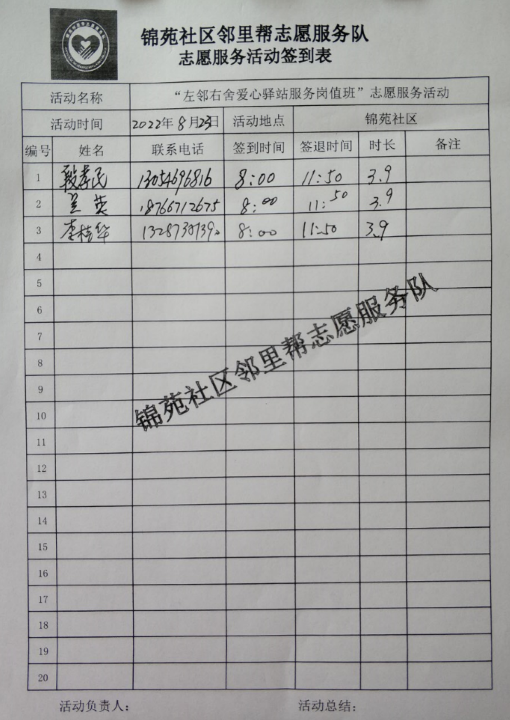 锦苑社区邻里帮志愿服务队
志愿服务活动签到表
活动名称 “左邻右舍爱心驿站服务岗值班”志愿服务活动
活动时间 2022年8月23日 活动地点 锦苑社区
编号 姓名 联系电话 签到时间 签退时间 时长 备注
1 段孝民 13054696816 8:00 11:50 3.9
2 兰英 18766712675 8:00 11:50 3.9
3 李桂华 8:00 11:50 3.9
4
5
6
7
8
9
10
11
12
13
14
15
16
17
18
19
20
锦苑社区邻里帮志愿服务队
活动负责人: 活动总结: